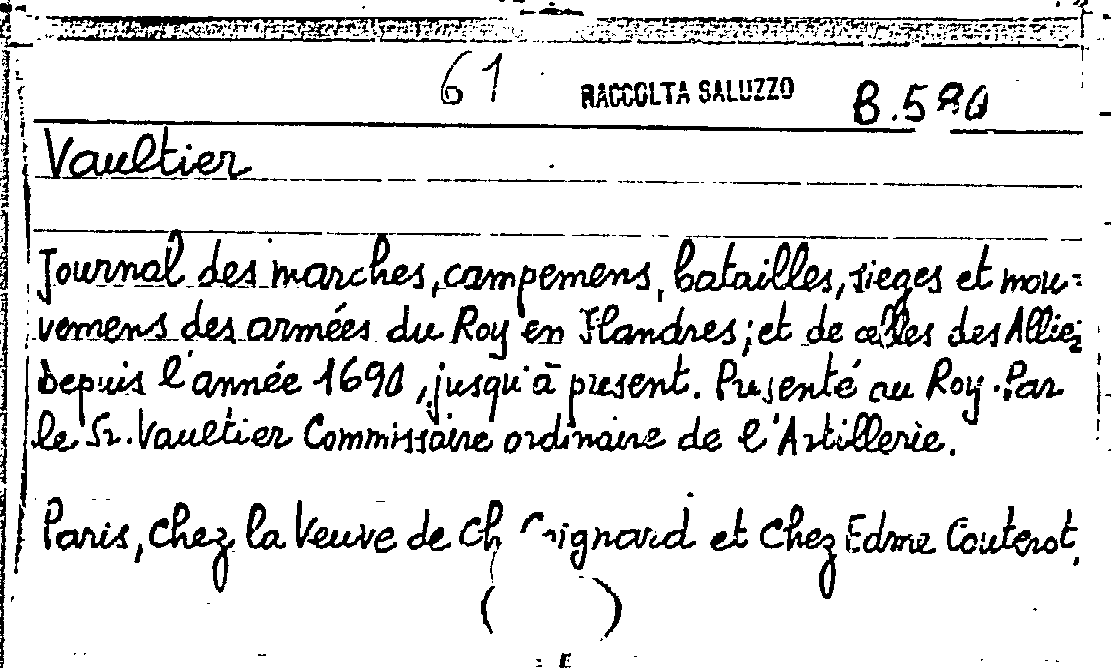 61 RACCOLTA SALUZZO B.580
Vaultier
Journal des marches, campemens, batailles, sieges et mou=
vemens des armées du Roy en Flandres; et de celles des Alliez
depuis l'année 1690, jusqu'à present. Presenté au Roy. Par
le Sr. Vaultier Commissaire ordinaire de l'Artillerie.
Paris, chez la Veuve de Ch et Chez Edme Couterot,
( )